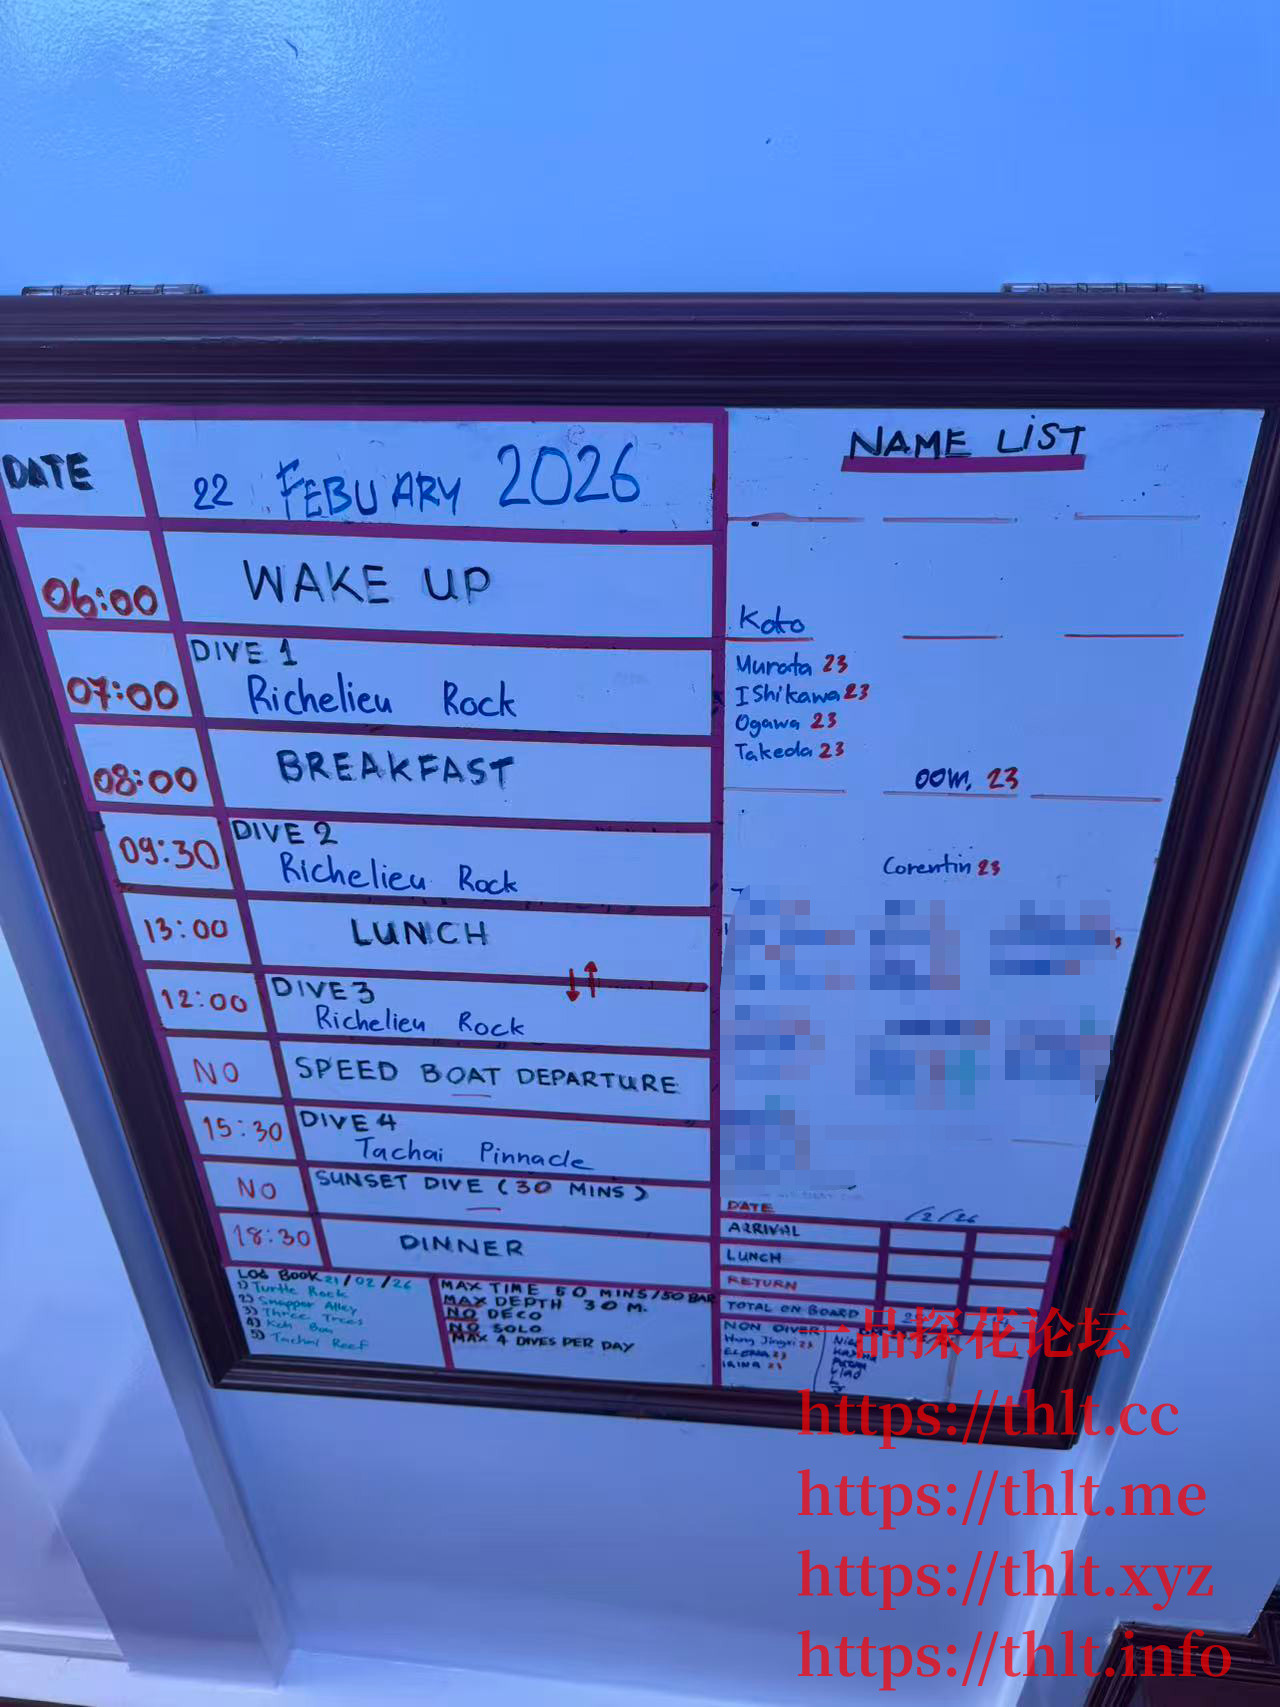 DATE
22 FEBUARY 2026
06:00 WAKE UP
07:00 DIVE 1
Richelieu Rock
08:00 BREAKFAST
09:30 DIVE 2
Richelieu Rock
13:00 LUNCH
12:00 DIVE 3
Richelieu Rock
NO SPEED BOAT DEPARTURE
15:30 DIVE 4
Tachai Pinnacle
NO SUNSET DIVE (30 MINS)
18:30 DINNER
LOG BOOK 21/02/26
1) Turtle Rock
2) Snapper Alley
3) Three Trees
4) Koh Bon
5) Tachai Reef
MAX TIME 50 MINS/50 BAR
MAX DEPTH 30 M.
NO DECO
NO SOLO
MAX 4 DIVES PER DAY
NAME LIST
Koto
Murata 23
Ishikawa 23
Ogawa 23
Takeda 23
OOM. 23
Corentin 23
DATE /2/26
ARRIVAL
LUNCH
RETURN
TOTAL ON BOARD
NON DIVER
Hung Jingxi 23
ELENA 23
IRINA 23
一品探花论坛
https://thlt.cc
https://thlt.me
https://thlt.xyz
https://thlt.info